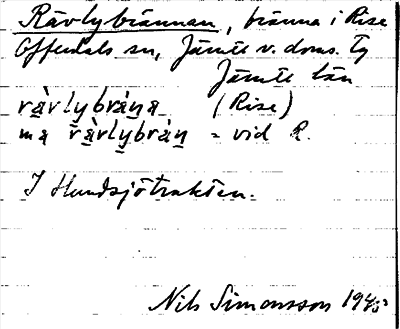 Rävlybrännan, bränna i Rise
Offerdals sn, Jämte v. doms. Tg
Jämte län
rävlybrána (Rise)
ma rävlybrán = vid R.
I Hundsjötrakten.
Nils Simonsson